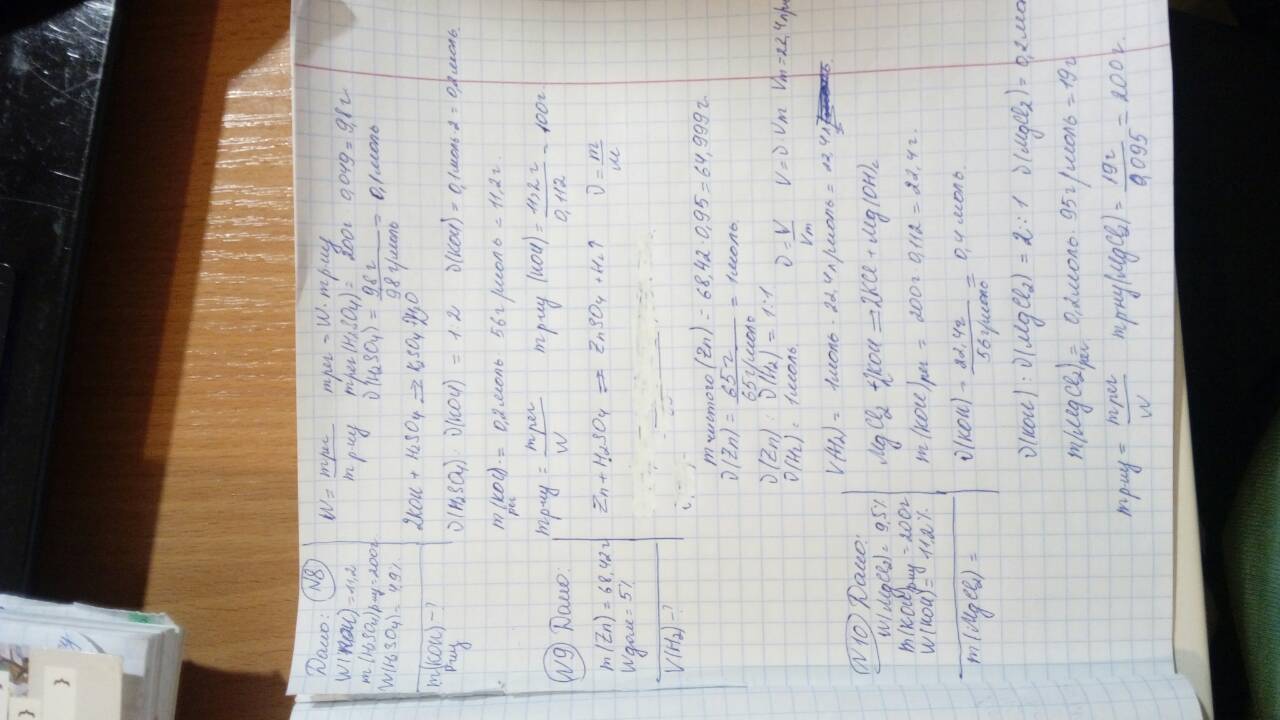 Дано: N8
W(KOH) = 11,2
m(H₂SO₄)р-ну = 200г
W(H₂SO₄) = 49%
m(KOH) - ?
р-ну
W = mреч / mр-ну   mреч = W · mр-ну
mреч(H₂SO₄) = 200г · 0,049 = 9,8г
ν(H₂SO₄) = 9,8г / 98г/моль = 0,1моль
2KOH + H₂SO₄ = K₂SO₄ + 2H₂O
ν(H₂SO₄) : ν(KOH) = 1:2   ν(KOH) = 0,1моль · 2 = 0,2моль
m(KOH)реч = 0,2моль · 56г/моль = 11,2г.
mр-ну = mреч / W   mр-ну(KOH) = 11,2г / 0,112 = 100г.
N9 Дано:
m(Zn) = 68,42г
Wдом = 5%
V(H₂) - ?
Zn + H₂SO₄ = ZnSO₄ + H₂↑   ν = m / M
mчистого(Zn) = 68,42 · 0,95 = 64,999г.
ν(Zn) = 65г / 65г/моль = 1моль
ν(Zn) : ν(H₂) = 1:1
ν(H₂) = 1моль   ν = V / Vm   V = ν · Vm   Vm = 22,4л/
V(H₂) = 1моль · 22,4л/моль = 22,4л
N10 Дано:
W(MgCl₂) = 9,5%
m(KOH)р-ну = 200г
W(KOH) = 11,2%
m(MgCl₂) =
MgCl₂ + 2KOH = 2KCl + Mg(OH)₂
m(KOH)реч = 200г · 0,112 = 22,4г.
ν(KOH) = 22,4г / 56г/моль = 0,4 моль.
ν(KOH) : ν(MgCl₂) = 2:1   ν(MgCl₂) = 0,2мо
m(MgCl₂)реч = 0,2моль · 95г/моль = 19г
mр-ну = mреч / W   mр-ну(MgCl₂) = 19г / 0,095 = 200г.